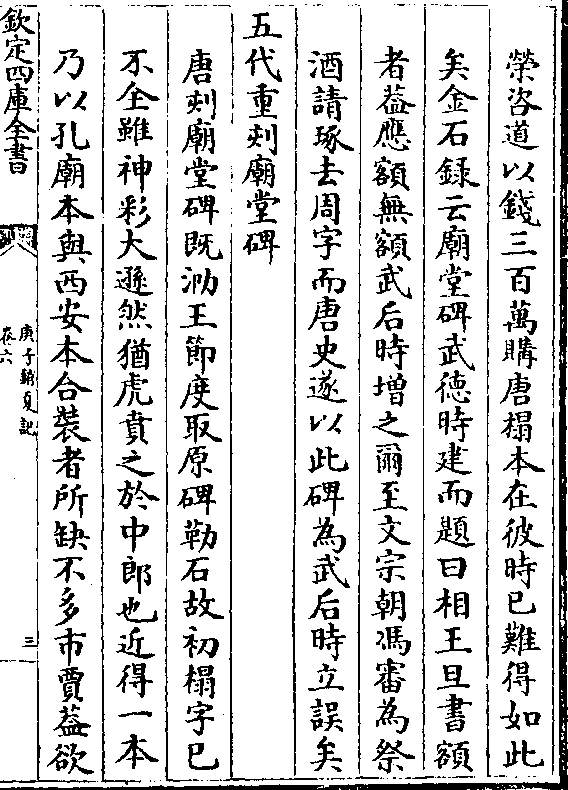 榮咨道以錢三百萬購唐榻本在彼時已難得如此
矣金石録云廟堂碑武德時建而題曰相王旦書額
者葢應額無額武后時增之爾至文宗朝馮審為祭
酒請琢去周字而唐史遂以此碑為武后時立誤矣
五代重刻廟堂碑
唐刻廟堂碑既泐王節度取原碑勒石故初榻字已
不全雖神彩大遜然猶虎賁之於中郎也近得一本
乃以孔廟本與西安本合裝者所缺不多市賈葢欲
欽定四庫全書
庚子銷夏記
卷六
三